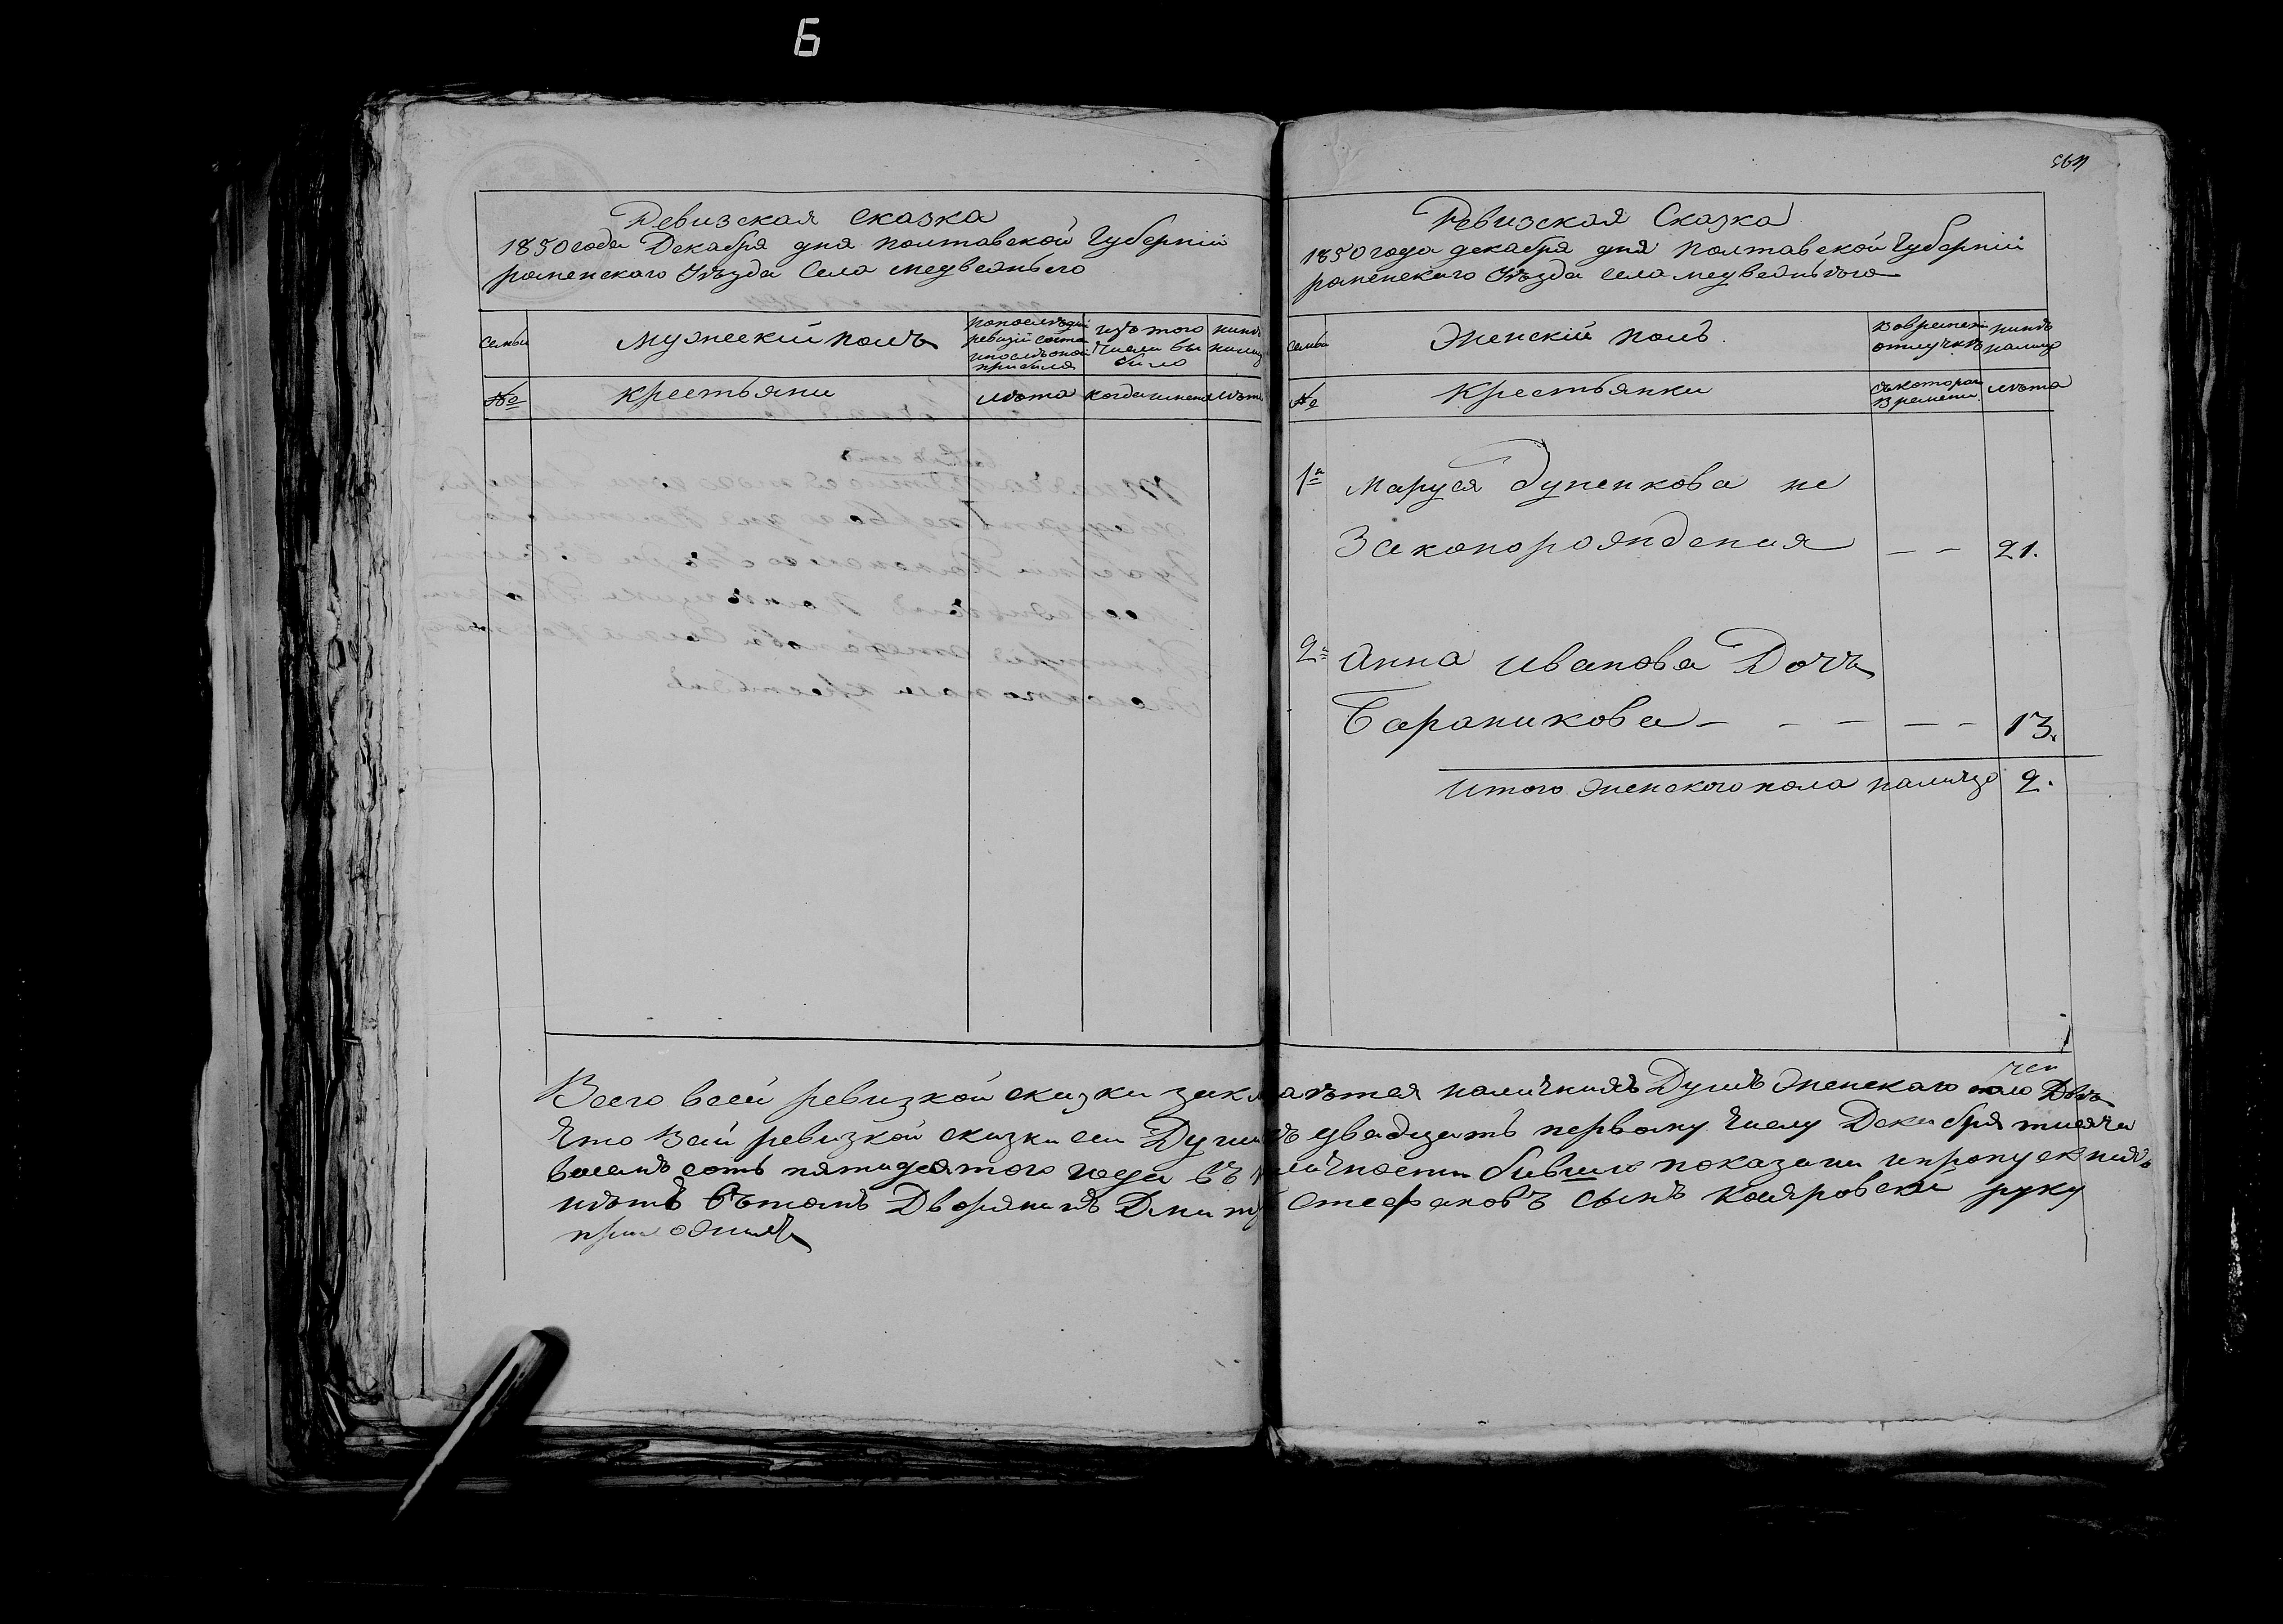 6
Ревизская сказка
1850 года Декабря дня полтавской Губерніи
роменскаго Уѣзда Села медвежьего
семьи
мужескій полъ
изъ того
числа вы
было
нынѣ
№
крестьяни
лѣта
когда имена
лѣта
Ревизская Сказка
1850 года декабря дня полтавской Губерніи
роменскаго Уѣзда села медвежьего
семьи
Женскій полъ.
во временн
отлучкѣ
нынѣ
налицо
№
Крестьянки
съ котораго
времени
лѣта
1я Маруся Дуненкова не
Законорожденая — — 21.
2я Анна иванова Дочь
Бараникова — — — — — 13.
итого женского пола налицо 2.
Всего всей ревизкой сказки заключаѣтся наличнихъ Душъ женскаго пола Двѣ
Что всей ревизкой сказки сеи Души къ двадцать первому числу Декабря тисяча
восемъ сотъ пятидесятого года въ наличности бившие показани и пропускнихъ
нѣтъ вътомъ Дворянинъ Дмитр Стефановъ синъ руку
приложилъ